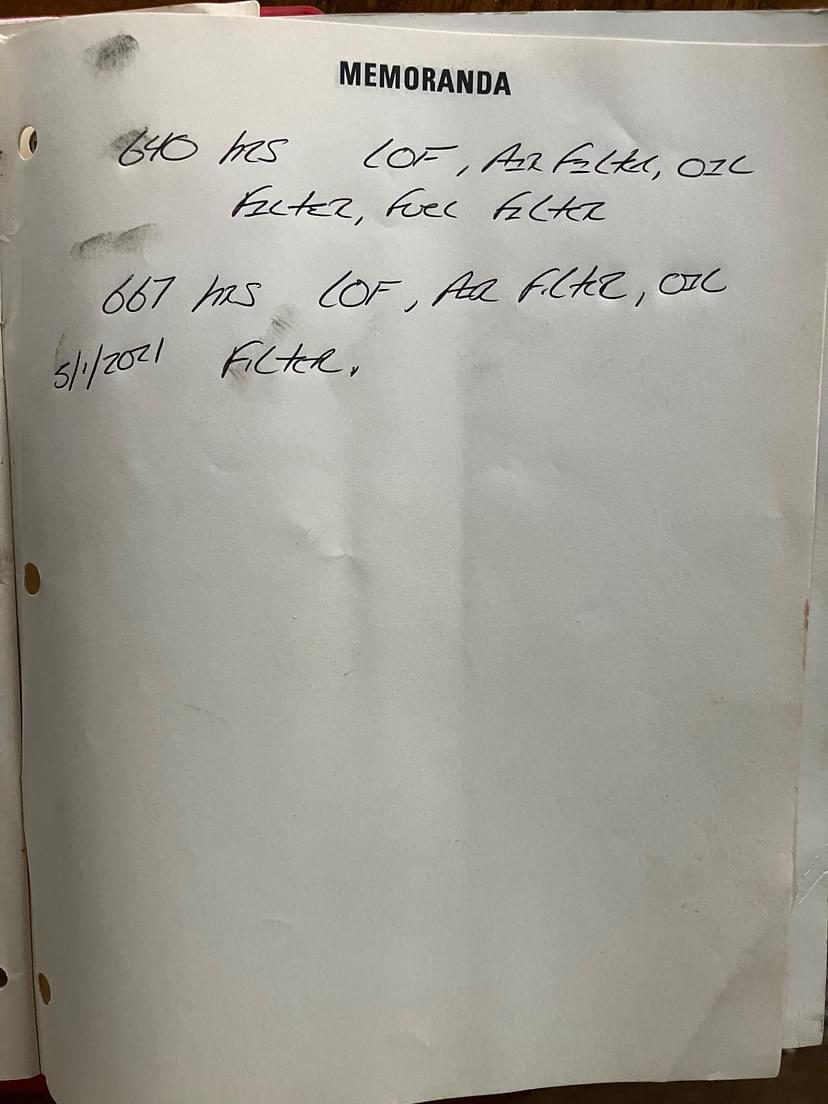 MEMORANDA
640 hrs LOF, AIR FILTER, OIL
FILTER, FUEL FILTER
667 hrs LOF, AIR FILTER, OIL
5/1/2021 FILTER.